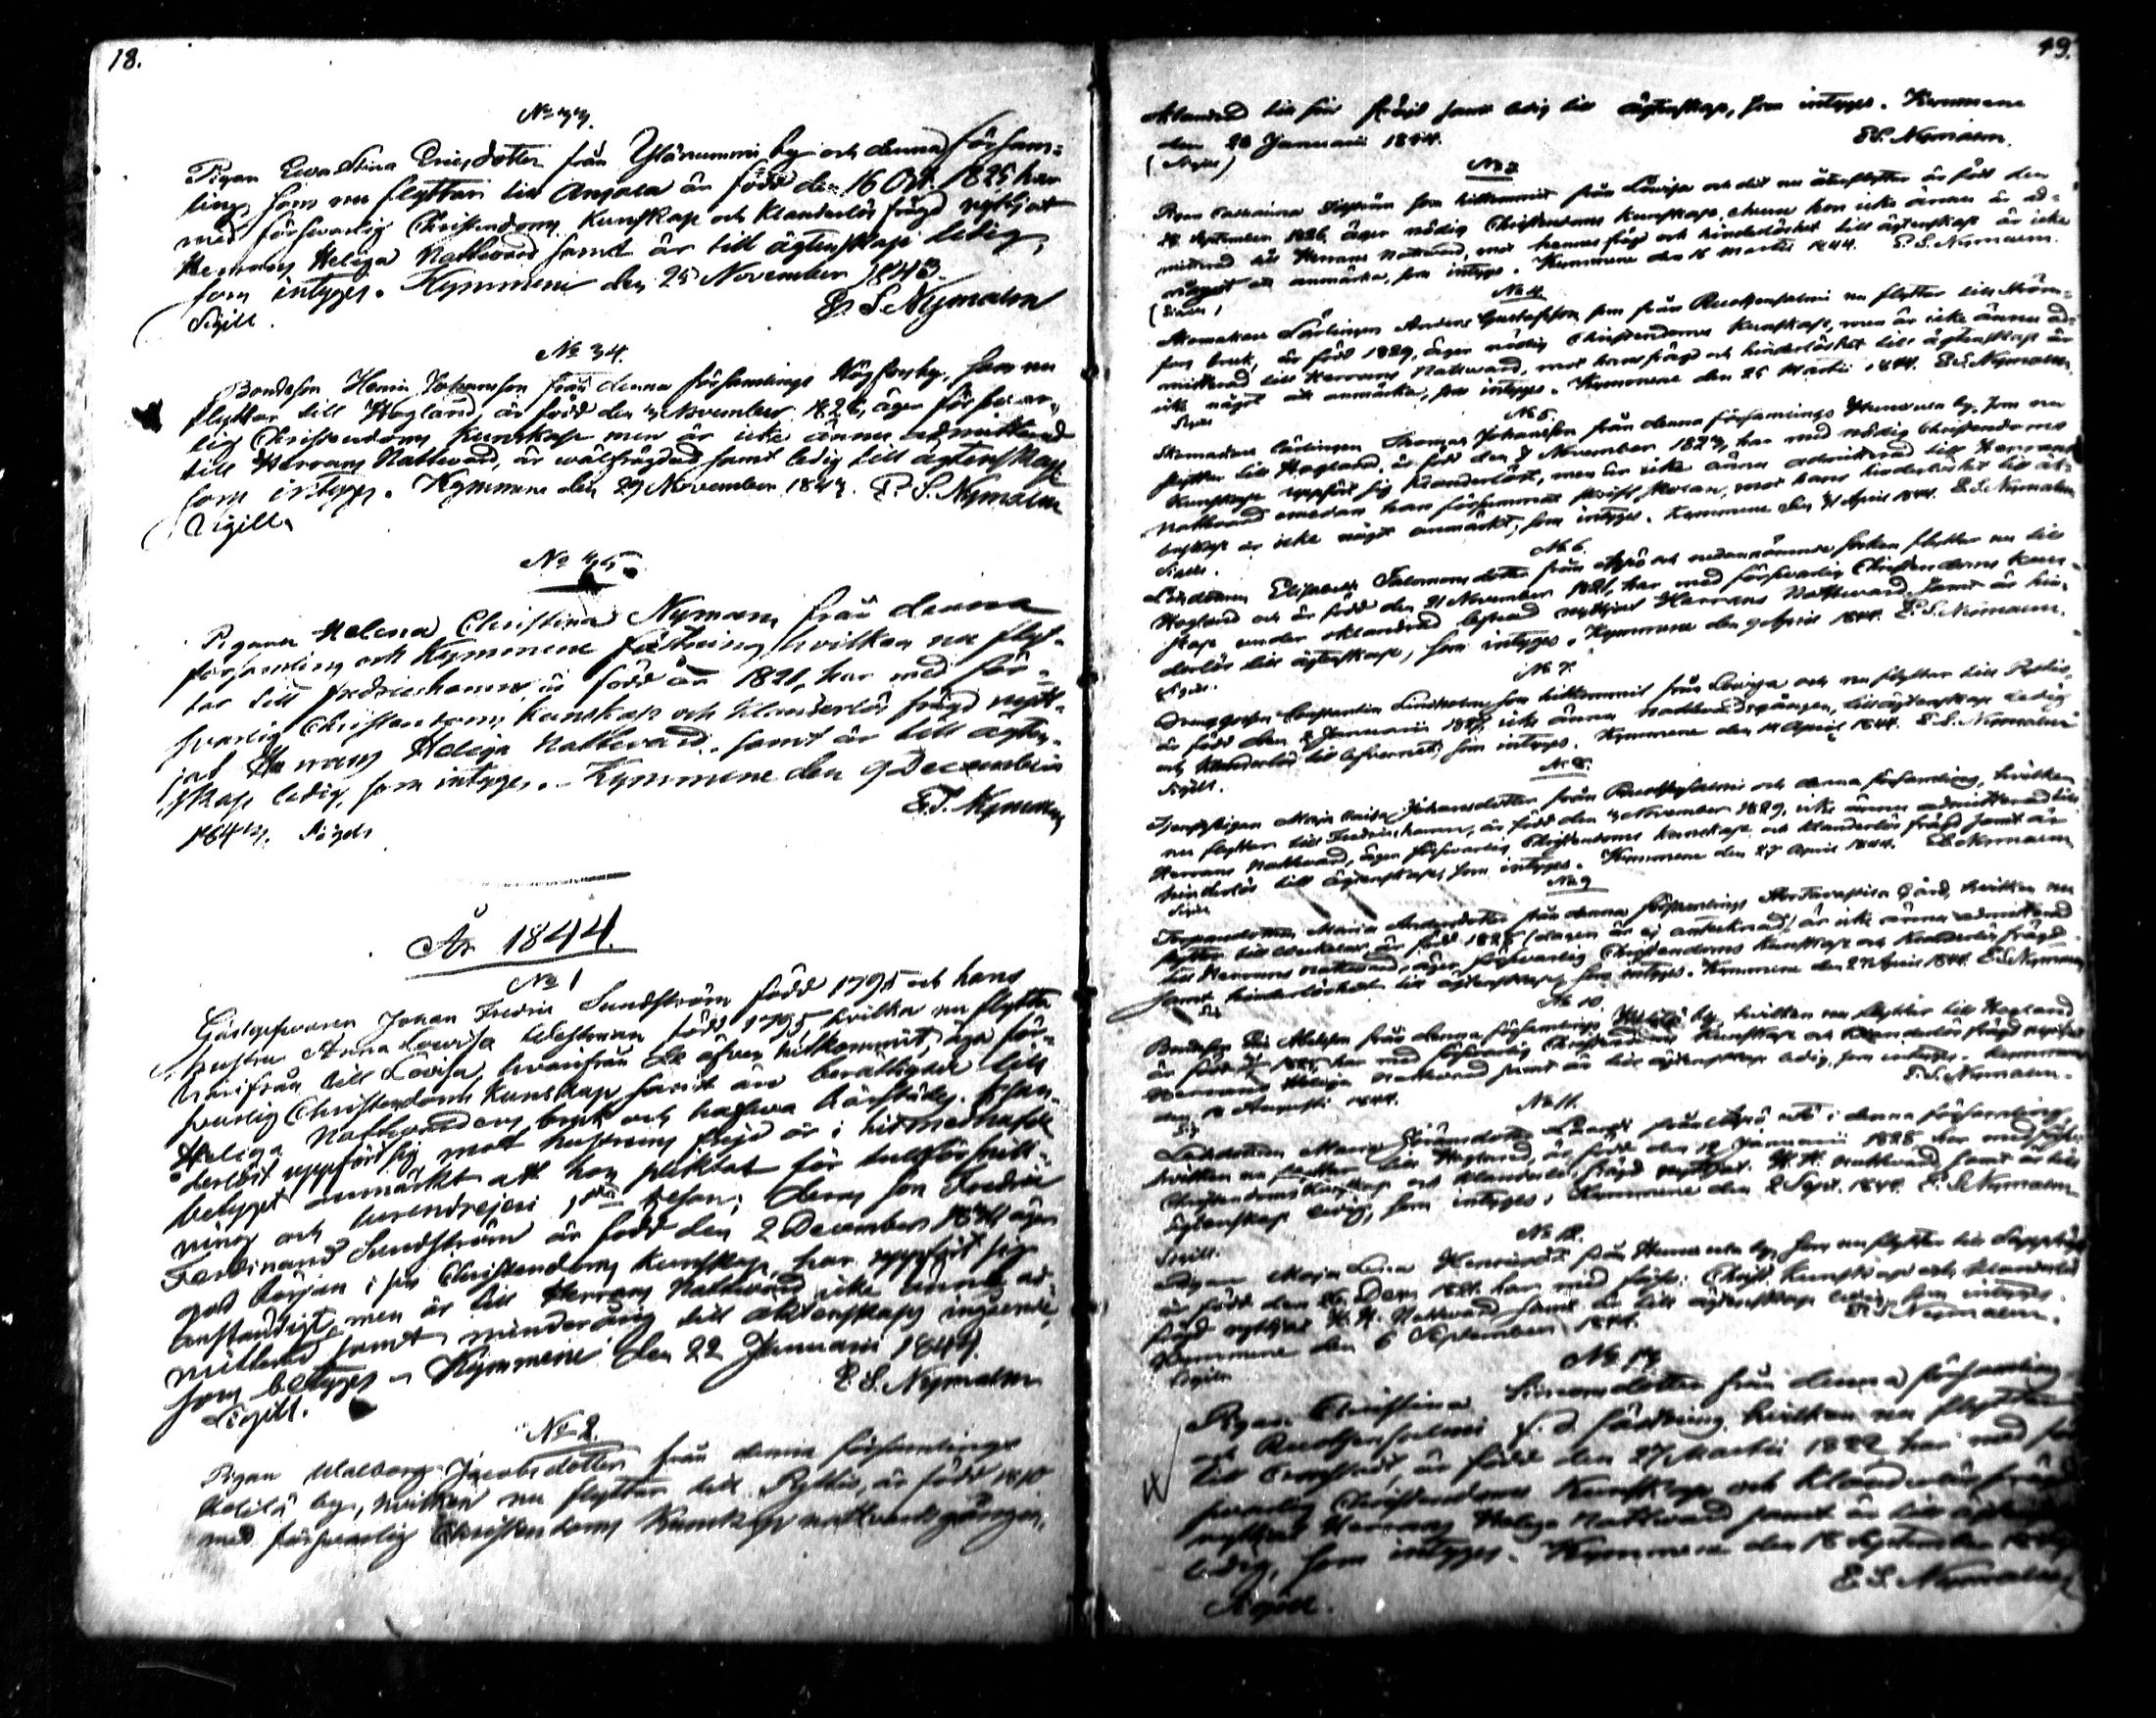 18.
No 33.
Pigan Ewa Stina Ericsdotter från Ylänummi by och denna försam-
ling som nu flyttar till Anjala är född den 16 Oct. 1825 har
med försvarlig Christendoms Kunskap och Klanderlös frägd nyttjat
Herrans Heliga Nattvard samt är till ägtenskap ledig,
som intyges. Kymmene den 25 November 1843.
Sigill. E. S. Nymalm
No 34.
Bondeson Henric Johansson från denna församlings Högfors by, som nu
flyttar till Hogland, är född den 3 November 1826, äger försvar-
lig Christendoms Kunskap men är icke ännu admitterad
till Herrans Nattvard, är wälfrägdad samt ledig till ägtenskap
som intyges. Kymmene den 29 November 1843. E. S. Nymalm
Sigill.
No 35.
Pigan Helena Christina Nyman från denna
församling och Kymmene fästning hvilken nu flyt-
tar till Fredricshamn är född år 1821, har med för-
svarlig Christendoms Kunskap och Klanderlös frägd nytt-
jat Herrans Heliga Nattvard, samt är till ägten-
skap ledig, som intyges. Kymmene den 9 Decembris
1843. Sigill E. S. Nymalm
År 1844.
No 1
Gästgifvaren Johan Fredric Sundström född 1795 och hans
hustru Anna Lovisa född 1795 hvilka nu flytta
härifrån till Lovisa, hvarifrån de äfven hitkommit, äga för-
svarlig Christendoms Kunskap samt äro berättigade till
Heliga Nattvardens bruk och hafva
derlöst uppfört sig, mot hustruns frejd är i hitmedhafde
betyget anmärkt att hon pliktat för
ning och resan; deras son Fredric
Ferdinand Sundström är född den 2 December äger
god början i sin Christendoms Kunskap, har uppfört sig
anständigt, men är till Herrans Nattvard icke ännu ad-
mitterad samt minderårig till äktenskaps ingående,
som betyges. Kymmene den 22 Januarii 1844.
Sigill. E. S. Nymalm
No 2.
Pigan Walborg Jacobsdotter från denna församlings
by, hvilken nu flyttar till Pyttis, är född 1810
med försvarlig Christendoms Kunskap nattvardsgången,
19.
till sin frägd samt ledig till ägtenskap, som intyges. Kymmene
den 28 Januarii 1844. E. S. Nymalm.
(Sigill)
No 3
Pigan Catharina som hitkommit från Lowisa och dit nu återflyttar är född den
September 1826, äger nödig Christendoms Kunskap, ehuru hon icke ännu är ad-
mitterad till Herrans Nattvard, mot hennes frägd och hinderlöshet till ägtenskap är icke
något att anmärka, som intyges. Kymmene den 16 Martii 1844. E. S. Nymalm.
(Sigill)
No 4.
Skomakare Lärlingen Anders Gustafsson som från Ruotsensalmi nu flyttar till Ström-
fors bruk, är född 1829, äger nödig Christendoms Kunskap, men är icke ännu ad-
mitterad till Herrans Nattvard, mot hans frägd och hinderlöshet till ägtenskap är
icke något att anmärka, som intyges. Kymmene den 25 Martii 1844. E. S. Nymalm
Sigill
No 5.
lärlingen Thomas Johansson från denna församlings by, som nu
flyttar till Hogland, är född den 7 November 1823, har med nödig Christendoms
Kunskap uppfört sig klanderlöst, men är icke ännu admitterad till Herrans
Nattvard emedan han försummat skriftskolan, mot hans hinderlöshet till äk-
tenskap är icke något anmärkt, som intyges. Kymmene den April 1844. E. S. Nymalm
Sigill.
No 6.
Elisabeth Salomonsdotter från och socken flyttar nu till
Hogland och är född den 21 November 1821, har med försvarlig Christendoms Kun-
skap under oklandrad lefnad nyttjat Herrans Nattvard samt är hin-
derlös till ägtenskap, som intyges. Kymmene den 9 April 1844. E. S. Nymalm.
Sigill.
No 7.
Lindholm som hitkommit från Lowisa och nu flyttar till Pyttis,
är född den Januarii icke ännu nattvardsgången, till ägtenskap ledig
och klanderlös till lefvernet, som intyges. Kymmene den 14 April 1844. E. S. Nymalm
Sigill.
No 8.
Tjenstepigan Maja Caisa Johansdotter från Ruotsensalmi och denna församling, hvilken
nu flyttar till Fredricshamn, är född den 3 November 1829, icke ännu admitterad till
Herrans Nattvard, äger försvarlig Christendoms Kunskap och klanderlös frägd samt är
hinderlös till ägtenskap, som intyges. Kymmene den 27 April 1844. E. S. Nymalm
Sigill
No 9
Maria Andersdotter från denna församlings gård, hvilken nu
flyttar till är född 1825 (dagen är ej antecknad) är icke ännu admitterad
till Herrans nattvard, äger försvarlig Christendoms Kunskap och klanderlös frägd
samt hinderlöshet till ägtenskap, som intyges. Kymmene den 27 April 1844. E. S. Nymalm
Sig
No 10.
Bondeson från denna församlings by, hvilken nu flyttar till Hogland
är född har med försvarlig Christendoms Kunskap och klanderlös frägd nyttjat
Herrans Heliga Nattvard samt är till ägtenskap ledig, som intyges. Kymmene
den Augusti 1844. E. S. Nymalm.
Sig
No 11.
Maria Göransdotter från i denna församling,
hvilken nu flyttar till Hogland, är född den 12 Januarii 1825 har med förs.
Christendoms Kunskap och klanderlös frägd nyttjat H. H. Nattvard samt är till
ägtenskap ledig, som intyges. Kymmene den 2 Sept. 1844. E. S. Nymalm
Sigill.
No 12.
Pigan Maja Lisa Henricsd:r från by, som nu flyttar till
är född den 26 Decr 1821. har med förs: Christ. Kunskap och klanderlös
frägd nyttjat H. H. Nattvard samt är till ägtenskap ledig, som intyges.
Kymmene den 6 September 1844. E. S. Nymalm.
Sigill
No 13
Pigan Christina Simonsdotter från denna församling
och Ruotsensalmi f. d. fästning, hvilken nu flyttar
till Cronstadt, är född den 27 Martii 1822 har med för-
svarlig Christendoms Kunskap och klanderlös frägd
nyttjat Herrans Heliga Nattvard samt är till ägtenskap
ledig, som intyges. Kymmene den 18 September
Sigill. E. S. Nymalm